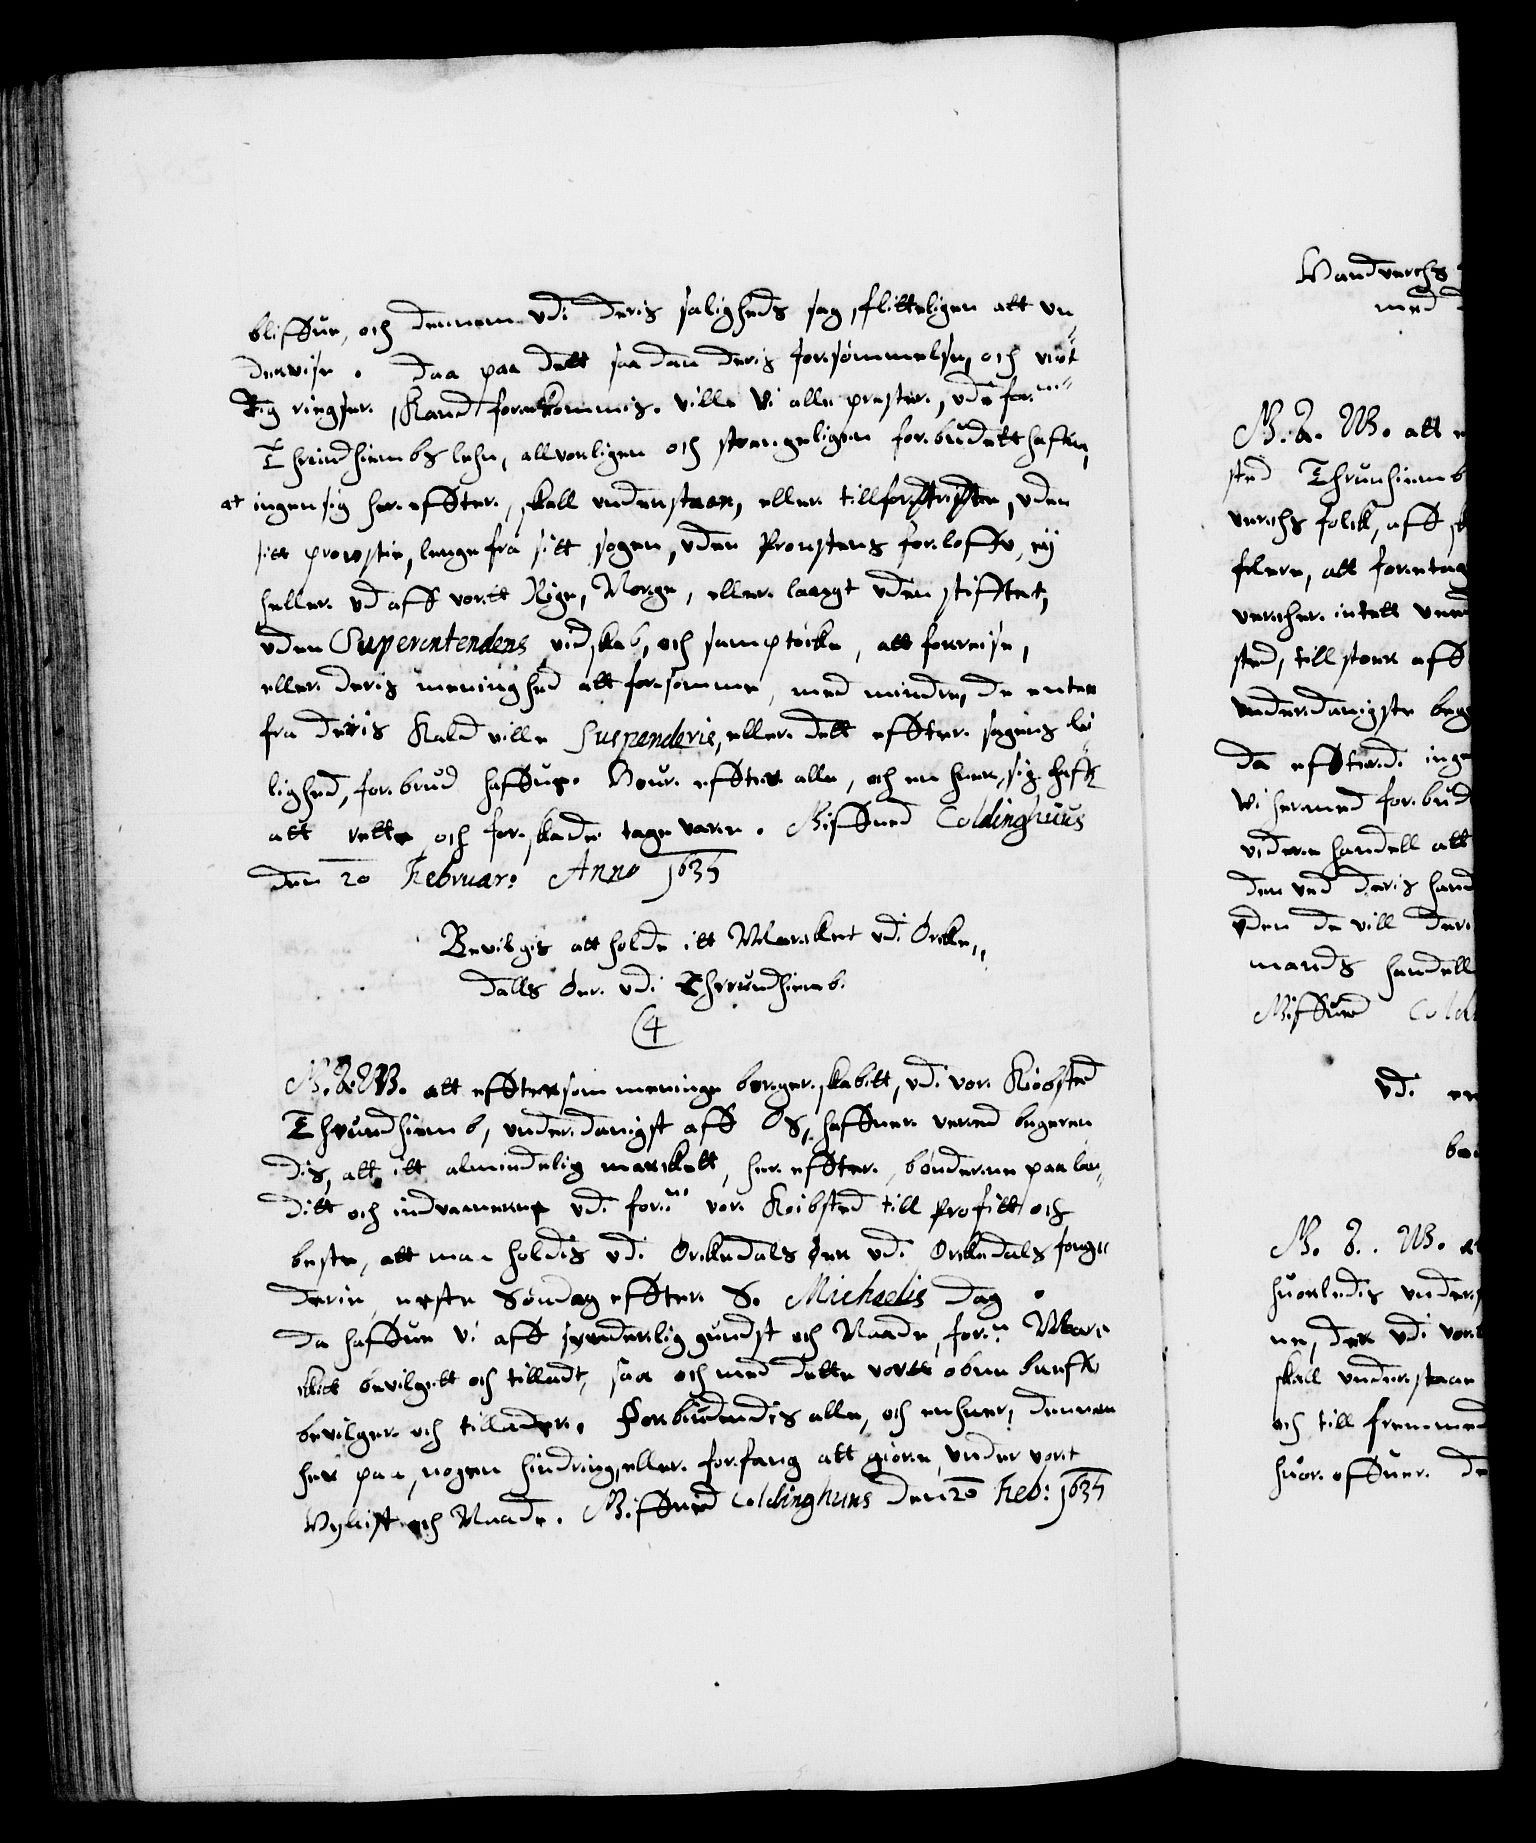 bliffue, och dennem udi deris saligheds sag, flitteligen att un¬
dervise. Daa paa dett saadan deris forsømmelse, och
Kand forrekommis. Ville Vi alle prester, udi for.ne
Thrundhiembs lehn, allvorligen och strengeligen forbudett haffue,
at ingen sig her effter, skall understaae, eller tillfordriste, uden
sitt prowstie, lenge fra sitt sogen, uden Proustens forloffue, eij
heller ud aff vortt Rige, Norge, eller laangt uden stifftet,
uden Superintendens vidskab, och samptøcke, att forreise,
eller deris meninghed att forsømme, med mindre, de enten
fra deris Kald ville Suspenderis, eller dett effter sagens lei¬
lighed, forbrud haffue. Hour effter alle, och en huer, sig haffr
att rette och for skade tage vare. Giffued Coldinghuus
den 20 Februar: Anno 1635
Bevilgis att holde itt Marcket udi Orcke¬
dalls Ør. udi Thrundhiemb.
4
G.A.W. att efftersom meninge borgerskabitt, udi vor Kiøbsted
Thrundhiemb, underdanigst aff Os, haffuer vered begeren¬
dis, att itt almindelig marckett, her effter, bønderne paa lan¬
ditt och indvaanerne udi for.ne vor Kiøbsted till Profitt och
beste, att maa holdis udi Orckedals Ør udi Orckedals foge¬
derie, neste Søndag effter S. Michaelis dag.
da haffue Vi aff synderlig gundst och Naade, for.ne Mar¬
ckitt bevilgett och tilladt, saa och med dette vortt obne breff
bevilger och tillader. Forbiudendis alle, och en huer, dennem
her paa, nogen hindring, eller forfang att giøre, under vort
Hyllist och Naade. Giffued Coldinghuus den 20 Feb: 1635
Handverchs
med
G.A.W. att
sted Thrunhiemb
verchs folck, aff
flere, att foretag
vercher intett
sted, till stoer aff
underdanigste beg
da effterd. inge
Vi hermed forbud
videre handell att
den ved deris hand
uden de vill deri
mands handell
Giffued Cold
Udi
G. A. W.
huorledis under
ne, der udi vor
skall understaae
och till fremmed
huor offuer de